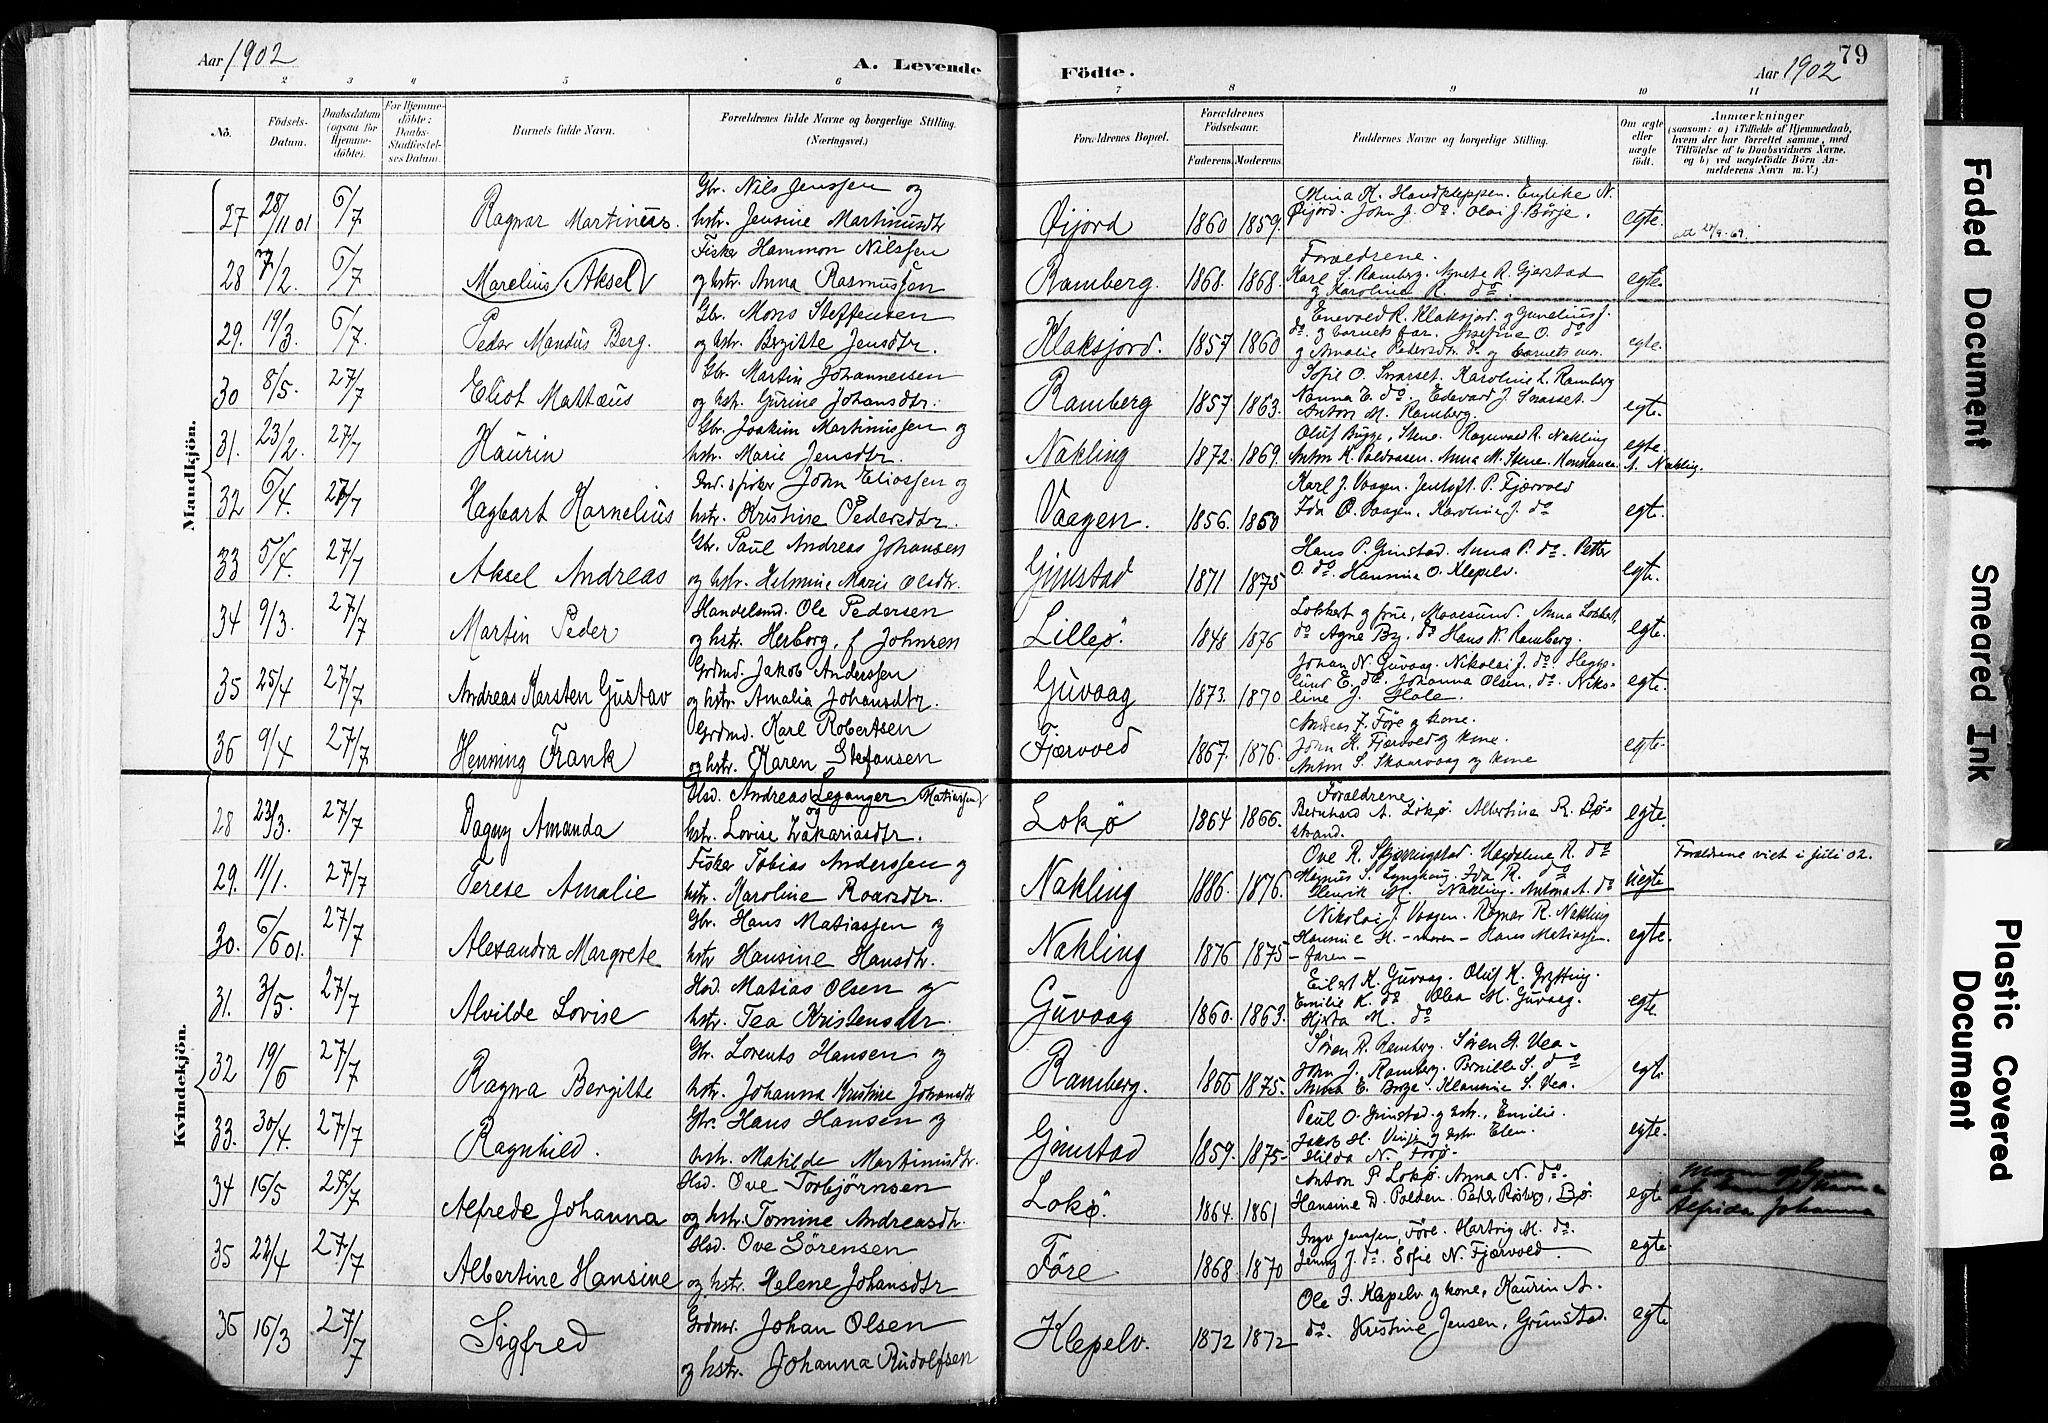 Aar 1902
A. Levende
Födte.
Aar 1902
79
1 2 3 4 5 6 7 8 9 10 11
No.
Födsels-Datum.
Daabsdatum (ogsaa for Hjemme-döbte).
For Hjemme-döbte: Daabs-Stadfæstel-ses Datum.
Barnets fulde Navn.
Forældrenes fulde Navne og borgerlige Stilling. (Næringsvei.)
Forældrenes Bopæl.
Forældrenes Födselsaar.
Faderens. Moderens.
Faddernes Navne og borgerlige Stilling.
Om ægte eller uægte födt.
Anmærkninger
(saasom: a) i Tilfælde af Hjemmedaab, hvem der har forrettet samme, med Tilföielse af to Daabsvidners Navne, og b) ved uægtefödte Börn An-melderens Navn m. V.)
Mandkjön.
27 28/11 01 6/7 Ragnar Martinius. Gbr. Nils Jenssen og
hstr. Jensine Martinusdtr Øijord 1860 1859. Mina H. Handkleppen. Enlike N.
Øijord. John J. do. Olai J. Börje. egte.
28 7/2. 6/7 Marelius Aksel Fisker Hammon Nilssen
og hstr. Anna Rasmussen Ramberg. 1868. 1868. Forældrene.
Karl S. Ramberg. Agnete R. Gjerstad
og Karoline R. do. egte.
29. 19/3. 6/7. Peder Mandus Berg. Gbr. Mons Steffensen
og hstr. Bergitte Jensdtr. Klaksjord. 1857 1860 Enevold R. Klaksjord. og Gunelius J.
do. og barnets far. Josefine O. do
og Amalie Pedersdtr. do og barnets mor. egte.
30 8/5. 27/7 Eliot Mattæus Gbr. Martin Johannessen
og hstr. Gurine Johansdtr. Ramberg 1857 1863. Sofie O. Snarset. Karoline L. Ramberg
Nanna E. do. Edevard J. Snasset.
Anton M. Ramberg. egte.
31. 23/2. 27/7 Kaurin Gbr. Joakim Martinussen og
hstr. Marie Jensdtr. Nakling 1872. 1869. Oluf Bugge, Stene. Ragnvald R. Nakling
Anton K. Anna M. Stene. Konstanse
A. Nakling. egte.
32 6/4. 27/7 Hagbart Kornelius Ind. & fisker John Eliassen og
hstr. Kristine Pedersdtr. Vaagen. 1856. 1860 Karl J. Vaagen. Jentoft P. Fjærvold
Ida O. Vaagen. Karoline J. do egt.
33 5/4. 27/7 Aksel Andreas Gbr. Paul Andreas Johansen
og hstr. Helmine Marie Olsdtr. Grimstad 1871 1875 Hans P. Grimstad. Anna P. do. Petter
O. do. Hansine O. Klepelv. egte.
34 9/3. 27/7 Martin Peder Handelsmd. Ole Pedersen
og hstr. Herborg, f. Johnsen Lilleø. 1848 1876 Lokkert og frue, Maasund. Anna Lokkert,
do Agne By. do Hans N. Ramberg. egte.
35 25/4 27/7 Andreas Karsten Gustav Grdmd. Jakob Anderssen
og hstr. Amalia Johansdtr. Guvaag 1873. 1870 Johan N. Guvaag. Nikolai J. do
E. do. Johanna Olsen, do.
J. Hole. egte.
36 9/4 27/7 Henning Frank Grdmd. Karl Robertsen
og hstr. Karen Stefansen Fjærvold 1867. 1876. Andreas F. Före og kone.
John K. Fjærvold og kone.
Anton S. Skaarvaag og kone egte.
Kvindekjön.
28 23/3. 27/7 Dagny Amanda Hsd. Andreas Leganger Matiassen og
hstr. Lovise Zakariasdtr. Lokø 1864 1866. Forældrene
Bernhard A. Lokø. Albertina R. Bø-
strand. egte.
29. 11/1. 27/7 Terese Amalie Fisker Tobias Anderssen og
hstr. Karoline Roarsdtr. Nakling 1886. 1876. Ove R. Skjærringstad. Magdalene R. do
Magnus S. Ida R. do
Henrik M. Nakling. Antona A. do uegte Forældrene viet i juli 02.
30. 6/6 01. 27/7 Alexandra Margrete Gbr. Hans Matiassen og
hstr Hansine Hansdtr. Nakling 1876 1875 Nikolai J. Vaagen. Ragnar R. Nakling
Hansine H. - moren - Hans Matiassen.
- faren - egte.
31. 3/5. 27/7 Alvilde Lovise Hsd. Matias Olsen og
hstr. Tea Kristensdtr. Guvaag 1860. 1863. Eilert K. Guvaag. Oluf K. Gytting.
Emilie K. do Olea M. Guvaag.
M. do egte.
32 19/6 27/7 Ragna Bergitte Gbr. Lorents Hansen og
hstr. Johanna Kristine Johansdtr Ramberg. 1866 1875. Søren R. Ramberg. Søren A. Vea-
John J. Ramberg. Pernille S. do
Anna E. Borge. Klausine S. Vea. egt.
33. 30/4. 27/7 Ragnhild. Gbr. Hans Hansen og
hstr. Matilde Martinusdtr. Grimstad 1859. 1875 Paul O. Grimstad og hstr., Emilie.
Jakob H. Vinje og hstr. Elen.
Hilda N. Före egte.
34 16/5 27/7 Alfrede Johanna Hsd. Ove Torbjörnsen
og hstr. Tomine Andreasdtr. Lokø. 1864. 1861 Anton P. Lokø. Anna N. do.
Hansine D. Polden. Peter Röberg, Bø. egte Alfrida Johanna
35 22/4 27/7 Albertine Hansine Hsd. Ove Sörensen
og hstr. Helene Johansdtr Före. 1868. 1870 Ingv Jenssen, Före. Hartvig M. do.
Jenny J. do. Sofie N. Fjærvold. egte.
36 16/3 27/7 Sigfred Grdmd. Johan Olsen
og hstr. Johanna Rudolfsen Klepelv. 1872 1872 Ole J. Klepelv og kone, Kaurin A.
do. Kristine Jensen, Grimstad. egte
Faded Document
Smeared Ink
Plastic Covered Document